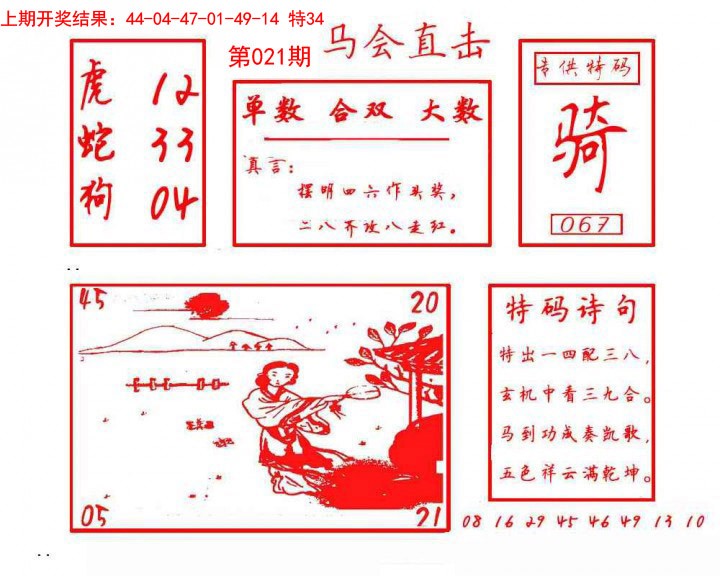 上期开奖结果：44-04-47-01-49-14 特34
第021期
马会直击
虎 12
蛇 33
狗 04
单数 合双 大数
真言：
摆明四六作头奖，
二八齐放八走红。
专供特码
骑
067
45
20
05
21
特码诗句
特出一四配三八，
玄机中看三九合。
马到功成奏凯歌，
五色祥云满乾坤。
08 16 29 45 46 49 13 10